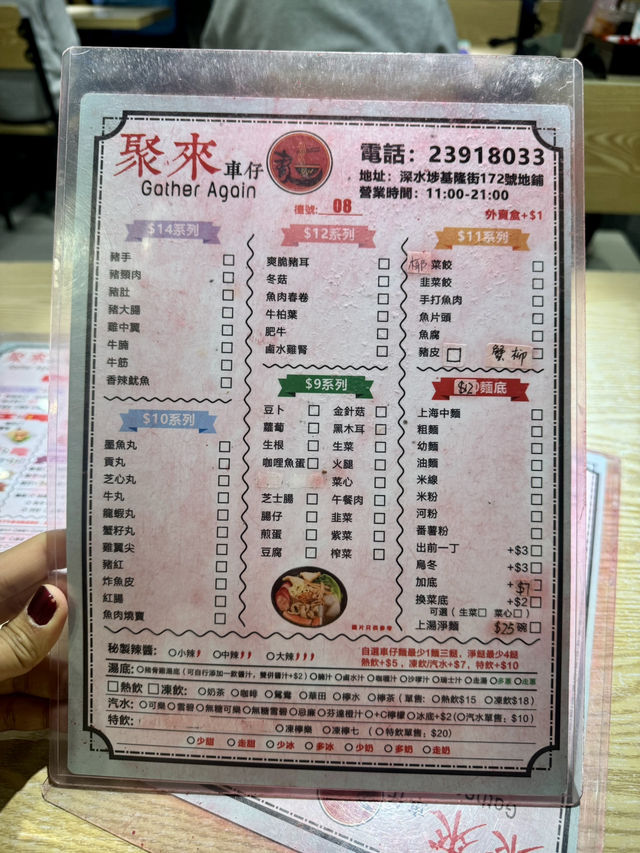 聚來車仔
Gather Again
電話：23918033
地址：深水埗基隆街172號地鋪
營業時間：11:00-21:00
檯號: 08
外賣盒+$1
$14系列
豬手
豬頸肉
豬肚
豬大腸
雞中翼
牛腩
牛筋
香辣魷魚
$12系列
爽脆豬耳
冬菇
魚肉春卷
牛柏葉
肥牛
鹵水雞腎
$11系列
菜餃
韭菜餃
手打魚肉
魚片頭
魚腐
豬皮
蟹柳
$10系列
墨魚丸
貢丸
芝心丸
牛丸
龍蝦丸
蟹籽丸
雞翼尖
豬紅
炸魚皮
紅腸
魚肉燒賣
$9系列
豆卜 金針菇
蘿蔔 黑木耳
生根 生菜
咖哩魚蛋 火腿
菜心
芝士腸 午餐肉
腸仔 韭菜
煎蛋 紫菜
豆腐 榨菜
圖片只供參考
麵底
上海中麵
粗麵
幼麵
油麵
米線
米粉
河粉
番薯粉
出前一丁 +$3
烏冬 +$3
加底 +$7
換菜底 +$2
可選（生菜 菜心）
上湯淨麵 $25碗
秘製辣醬： 小辣 中辣 大辣
自選車仔麵最少1麵三餸，淨餸最少4餸
熱飲+$5，凍飲/汽水+$7，特飲+$10
湯底： 豬骨雞湯底（可自行添加一款醬汁，雙併醬汁+$2） 腩汁 鹵水汁 咖喱汁 沙嗲汁 瑞士汁 走湯 多蔥 走蔥
熱飲 凍飲： 奶茶 咖啡 鴛鴦 華田 檸水 檸茶（單售： 熱飲$15 凍飲$18）
汽水： 可樂 雪碧 無糖可樂 無糖雪碧 忌廉 芬達橙汁 +C檸檬 冰底+$2（汽水單售：$10）
特飲： 凍檸樂 凍檸七 （特飲單售：$20）
少甜 走甜 少冰 多冰 少奶 多奶 走奶